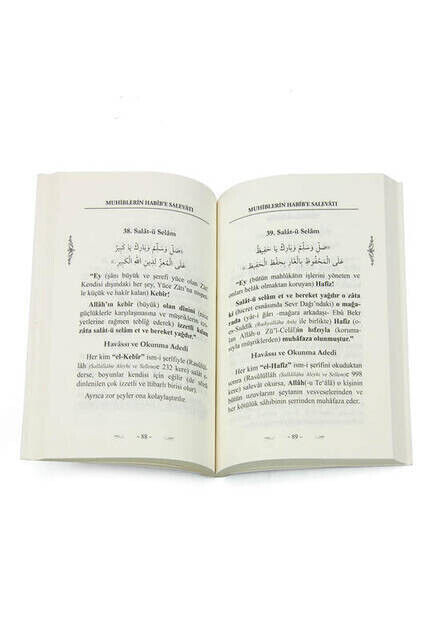 MUHİBLERİN HABİB'E SALEVÂTI
38. Salât-ü Selâm
«صَلِّ وَسَلِّمْ وَبَارِكْ يَا كَبِيرُ
عَلَى الْمُعَزِّ لِدِينِ اللهِ الْكَبِيرِ»
"Ey (şânı büyük ve şerefi yüce olan Zât!
Kendisi dışındaki her şey, Yüce Zâtı'na nispet-
le küçük ve hakîr kalan) Kebîr!
Allâh'ın kebîr (büyük) olan dînini (nice
güçlüklerle karşılaşmasına ve müşriklerin ezi-
yetlerine rağmen tebliğ ederek) izzetli kılan
zâta salât-ü selâm et ve bereket yağdır."
Havâssı ve Okunma Adedi
Her kim "el-Kebîr" ism-i şerîfiyle (Rasûlül-
lâh (Sallâllâhu Aleyhi ve Sellem)e 232 kere) salevât
okursa, boyunları kendisi için eğilir (de sözü
dinlenilen çok izzetli ve îtibarlı birisi) olur.
Ayrıca zor şeyler ona kolaylaştırılır.
- 88 -
MUHİBLERİN HABİB'E SALEVÂTI
39. Salât-ü Selâm
«صَلِّ وَسَلِّمْ وَبَارِكْ يَا حَفِيظُ
عَلَى الْمَحْفُوظِ بِالْغَارِ بِحِفْظِ الْحَفِيظِ»
"Ey (bütün mahlûkâtın işlerini yöneten ve
onları belâlardan koruyan) Hafîz!
Salât-ü selâm et ve bereket yağdır o zâta
ki (hicret esnâsında Sevr Dağı'ndaki) o mağa-
rada (yâr-i ğârı -mağara arkadaşı- Ebû Bekr
es-Sıddîk (Radıyallâhu Anh) ile birlikte) Hafîz (koruma-
sı olan Allâh-u Zü'l-Celâl)in hıfzıyla (düşman
müşriklerden) muhâfaza olunmuştur."
Havâssı ve Okunma Adedi
Her kim "el-Hafîz" ism-i şerîfini okuduktan
sonra (Rasûlüllâh (Sallâllâhu Aleyhi ve Sellem)e 998
kere) salevât okursa, Allâh(-u Te'âlâ) o kişinin
bütün uzuvlarını şeytanın vesveselerinden ve
her kötülük sâhibinin şerrinden muhâfaza eder.
- 89 -